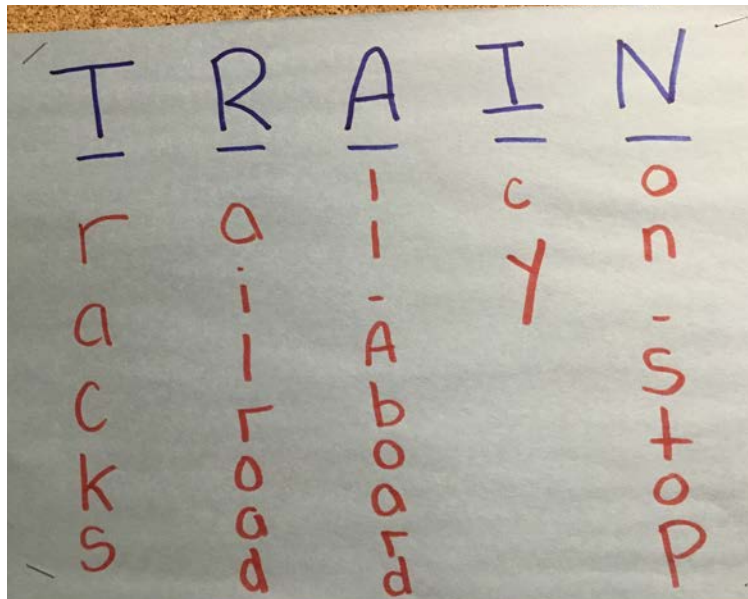 TRAIN
Tracks
Railroad
All-Aboard
Icy
Non-StoP